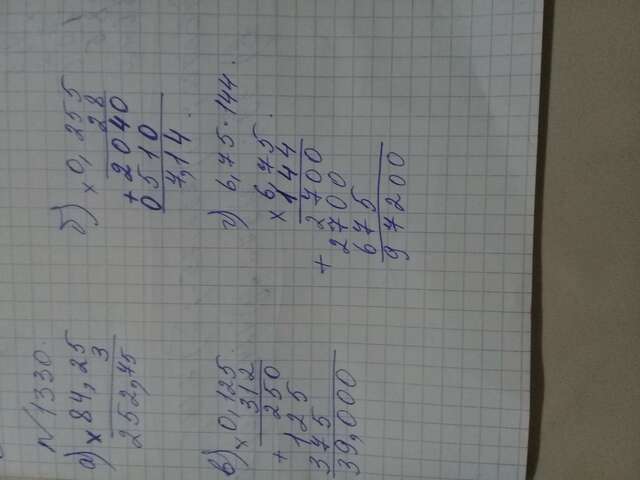 N1330.
а) × 84,25
3
252,75
б) × 0,255
28
+ 2040
0510
7,14
в) × 0,125
312
250
+ 125
375
39,000
г) 6,75·144.
× 6,75
144
2700
+ 2700
675
97200